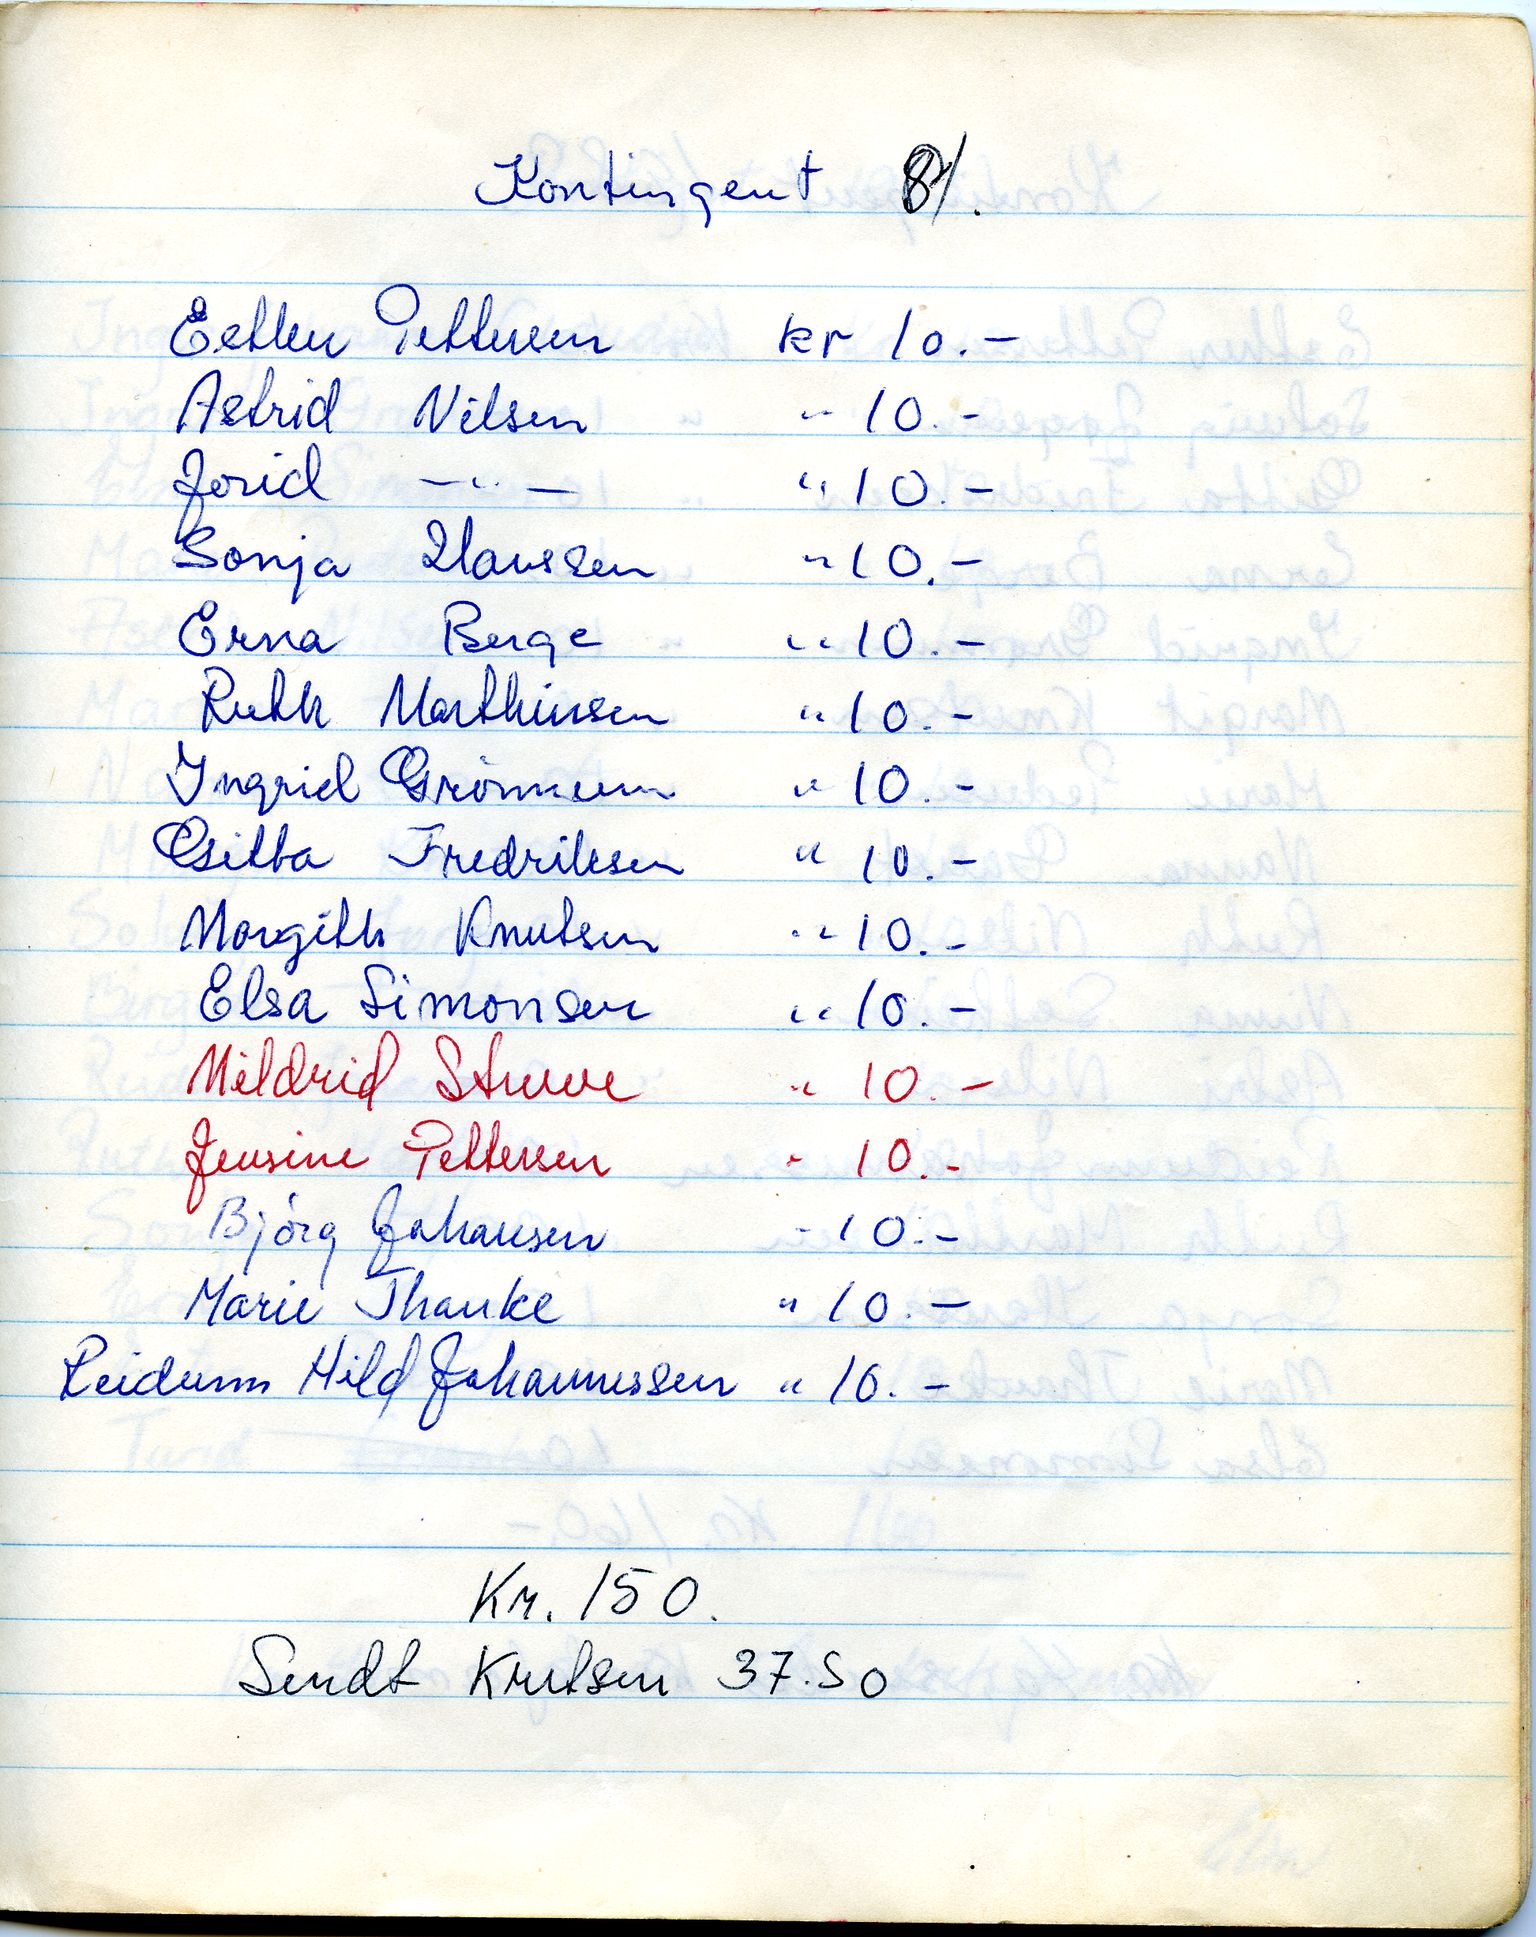 Kontingent 81.
Esther Pettersen kr 10.-
Astrid Nilsen " 10.-
Jorid -"- " 10.-
Sonja Hanssen " 10.-
Erna Berge " 10.-
Ruth Marthinsen " 10.-
Ingrid Grönnum " 10.-
Gitta Fredriksen " 10.-
Margith Knutsen " 10.-
Elsa Simonsen " 10.-
Mildrid Struve " 10.-
Jensine Pettersen " 10.-
Bjórg Johansen - 10.-
Marie Thauke " 10.-
Reidunn Hild Johannessen " 10.-
Kr. 150.
Sendt Knutsen 37.50